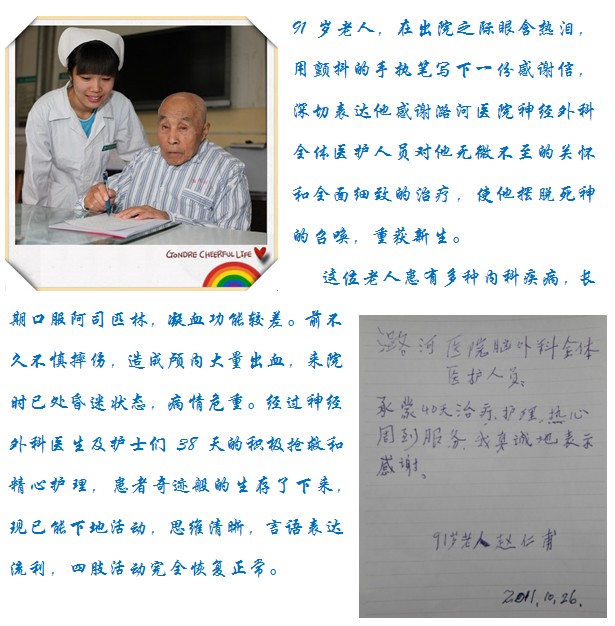 91 岁老人，在出院之际眼含热泪，
用颤抖的手执笔写下一份感谢信，
深切表达他感谢潞河医院神经外科
全体医护人员对他无微不至的关怀
和全面细致的治疗，使他摆脱死神
的召唤，重获新生。
GONDRE CHEERFUL LIFE
这位老人患有多种内科疾病，长
期口服阿司匹林，凝血功能较差。前不
久不慎摔伤，造成颅内大量出血，来院
时已处昏迷状态，病情危重。经过神经
外科医生及护士们 38 天的积极抢救和
精心护理，患者奇迹般的生存了下来，
现已能下地活动，思维清晰，言语表达
流利，四肢活动完全恢复正常。
潞河医院脑外科全体
医护人员：
承蒙40天治疗、护理、热心
周到服务，我真诚地表示
感谢。
91岁老人赵仁甫
2011.10.26.